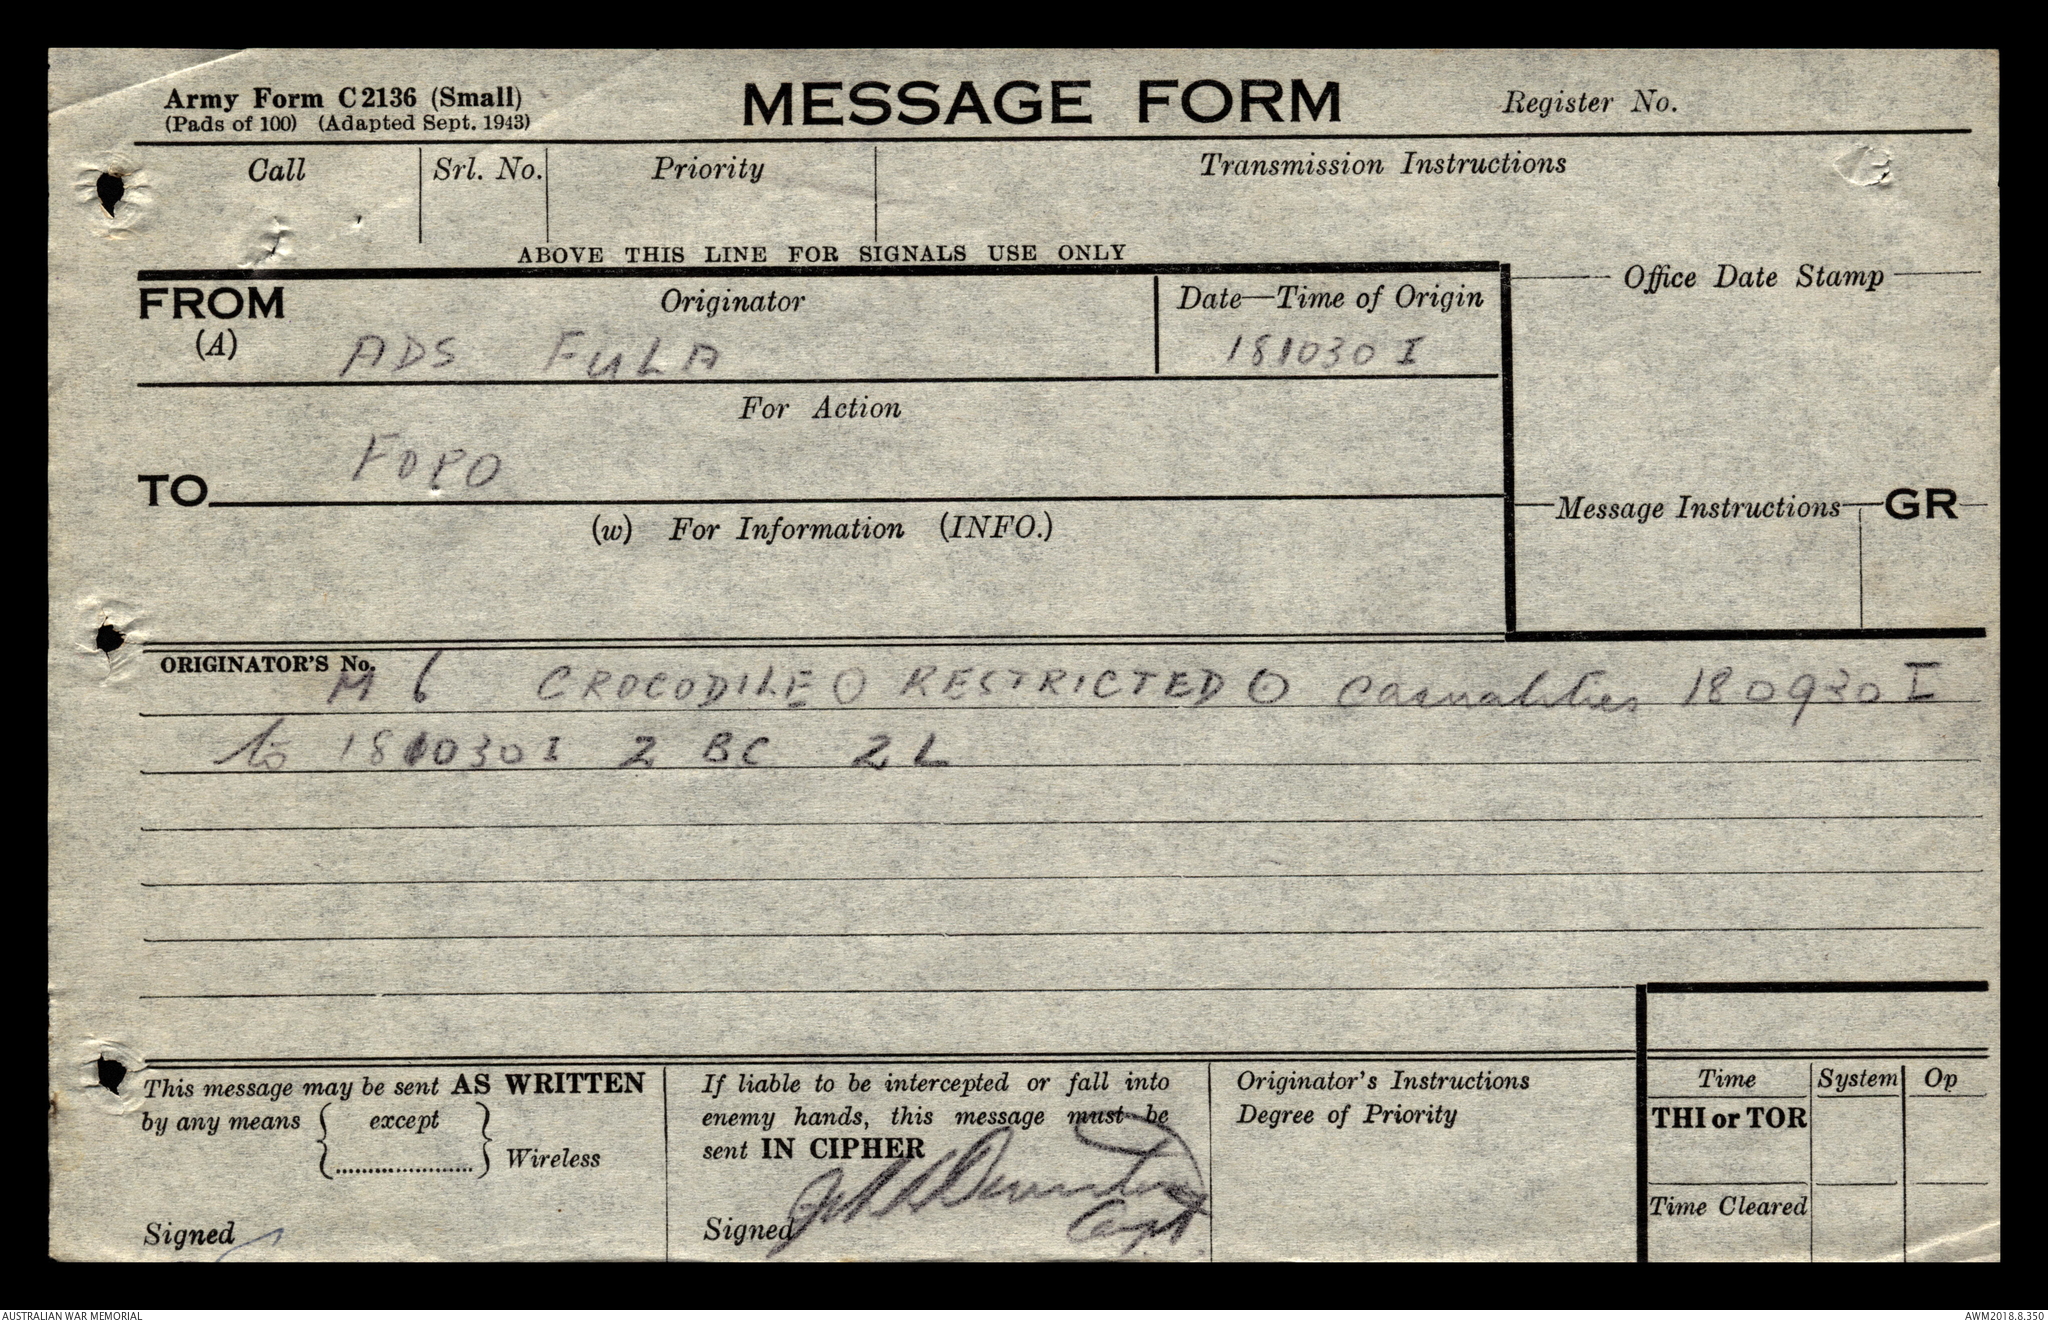 Army Form C2136 (Small)
(Pads of 100) (Adapted Sept. 1943)
MESSAGE FORM
Register No.
Call
Srl. No.
Priority
Transmission Instructions
ABOVE THIS LINE FOR SIGNALS USE ONLY
FROM
(A)
Originator
ADS FULA
Date—Time of Origin
181030 I
Office Date Stamp
For Action
FOPO
TO
(w) For Information (INFO.)
Message Instructions
GR
ORIGINATOR'S No.
M 6 CROCODILE O RESTRICTED O Casualties 180930 I
to 181030 I 2 BC 2 L
This message may be sent AS WRITTEN
by any means { except
.................... } Wireless
Signed
If liable to be intercepted or fall into
enemy hands, this message must be
sent IN CIPHER
Signed
Capt
Originator's Instructions
Degree of Priority
Time
System
Op
THI or TOR
Time Cleared
AUSTRALIAN WAR MEMORIAL
AWM2018.8.350